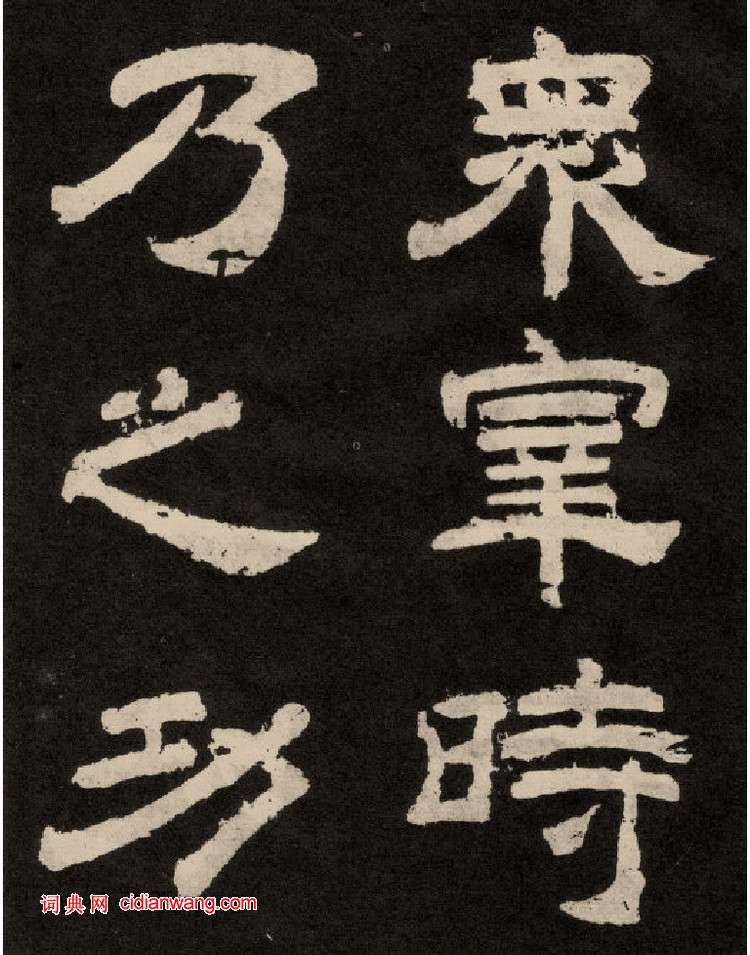 眾宰時
乃之功
词典网 cidianwang.com